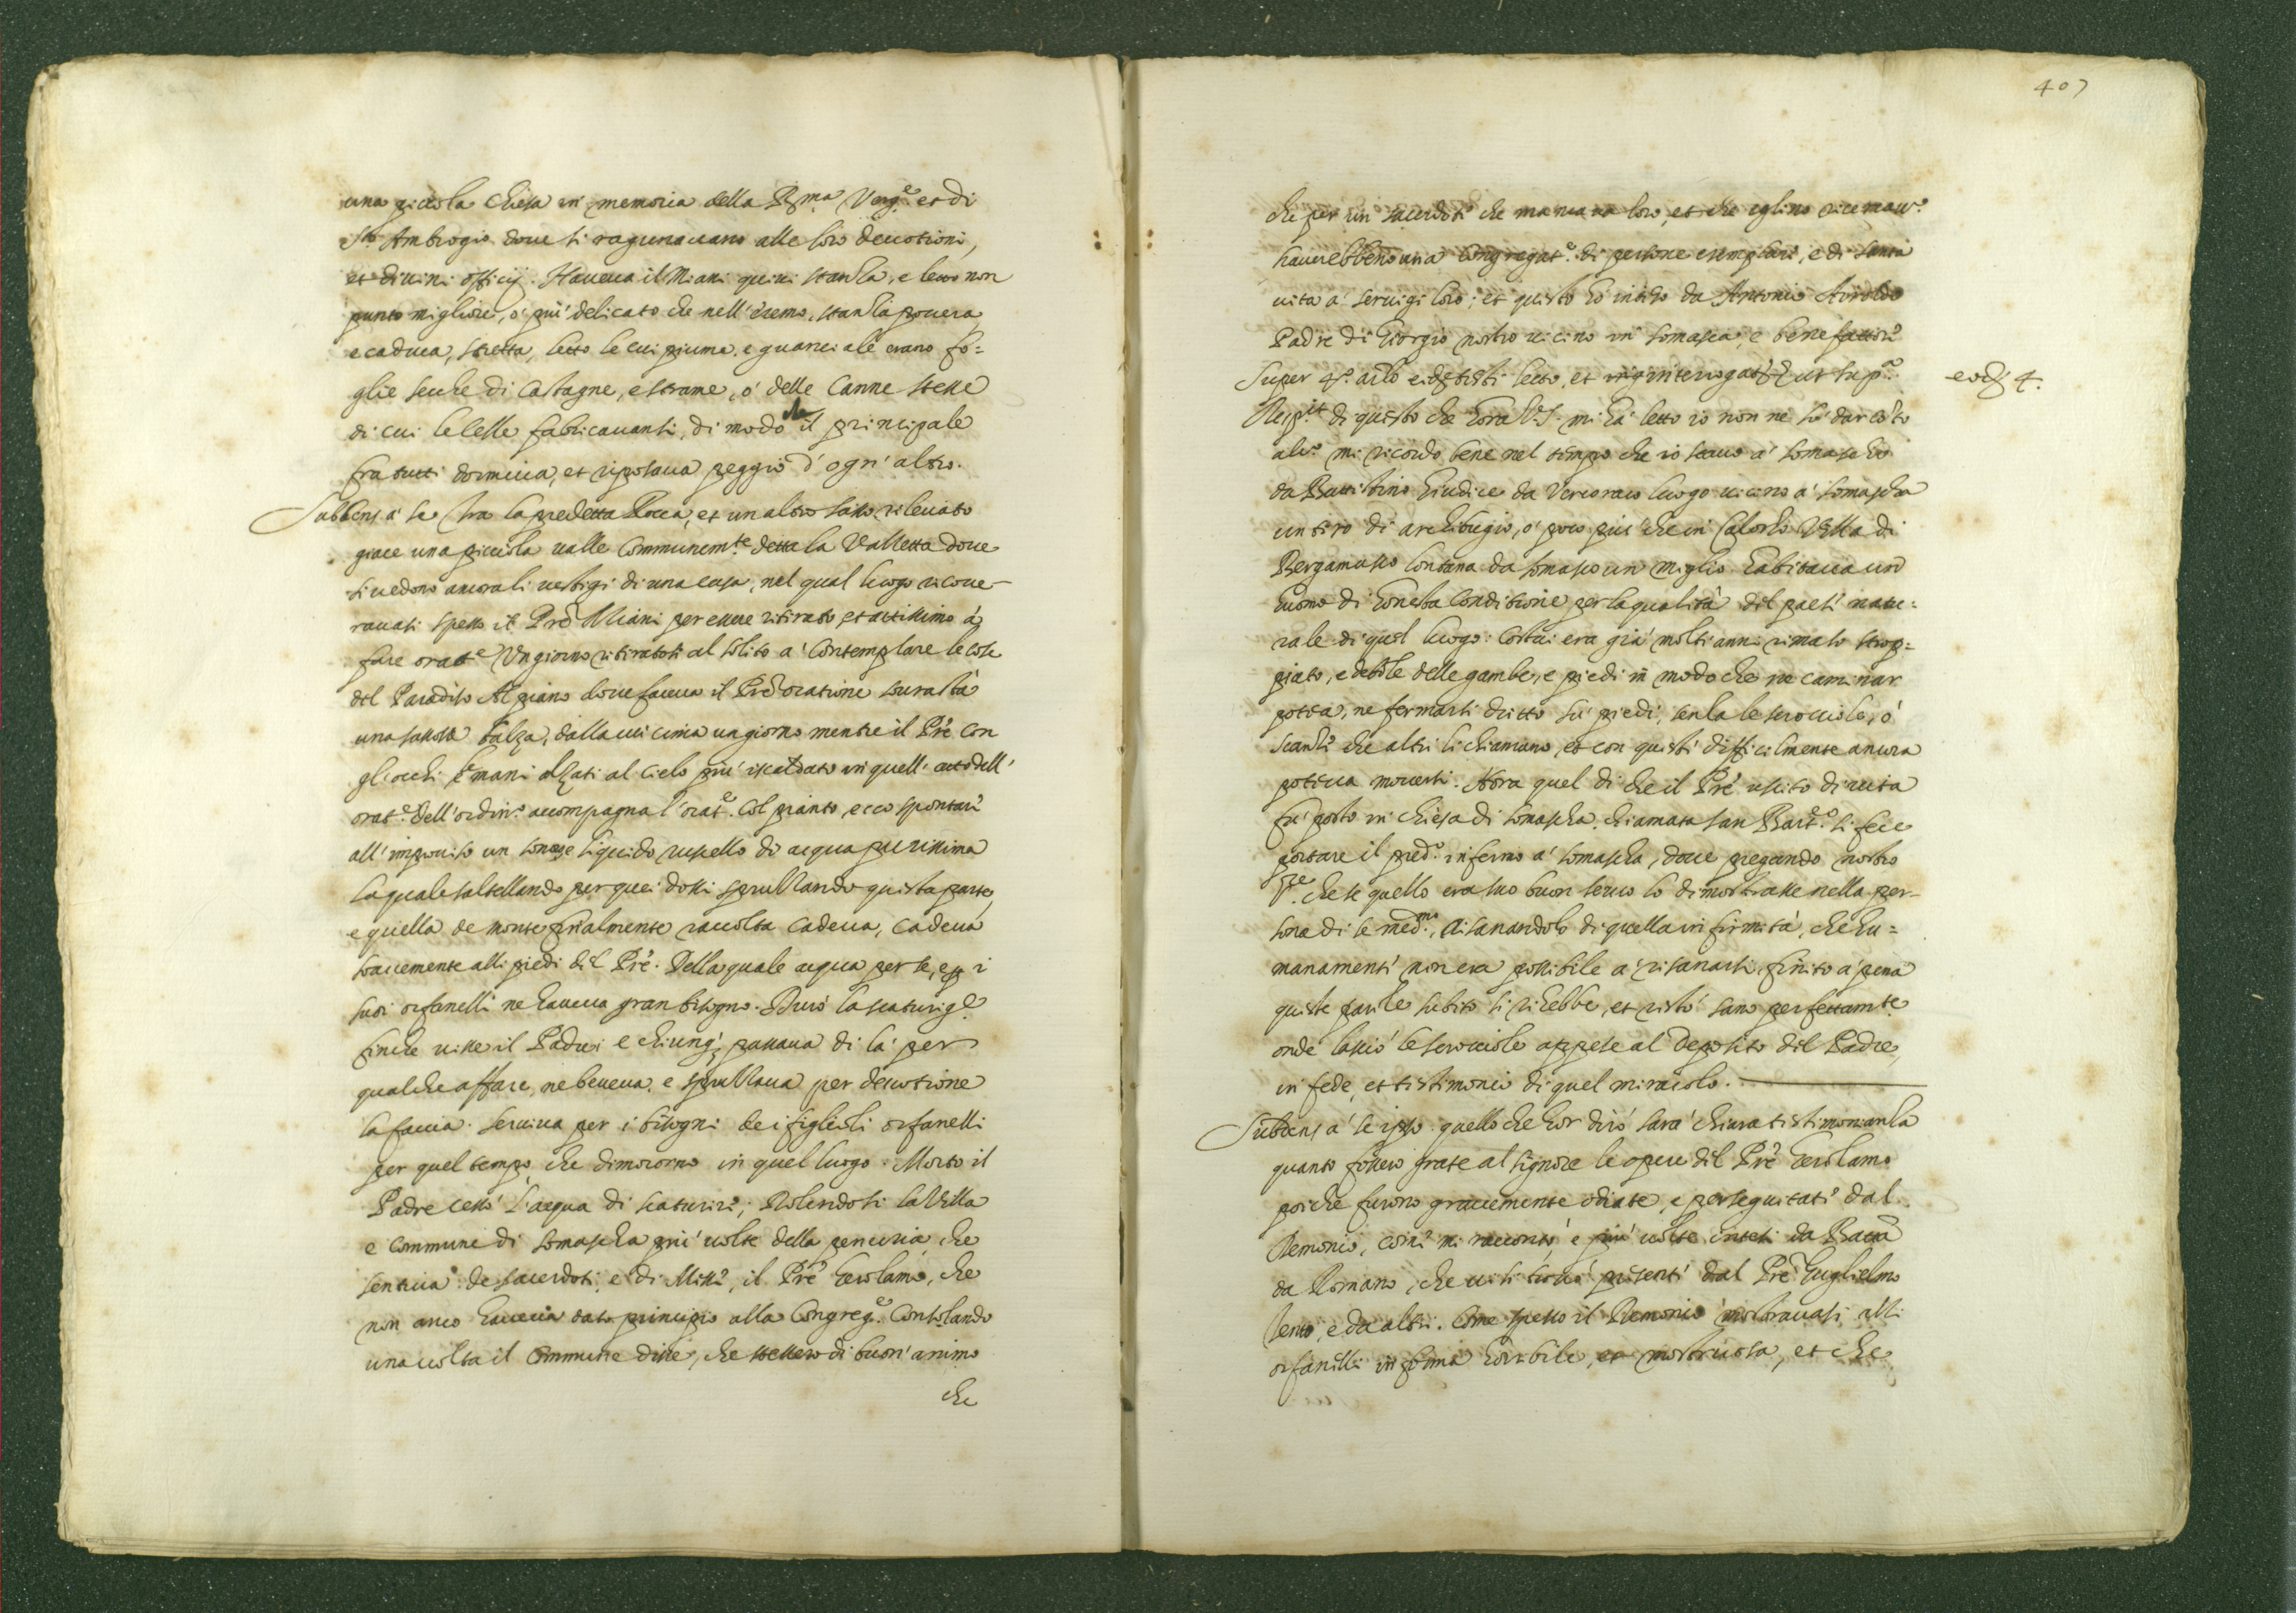 una picciola chiesa in memoria della B.ma Verg.e et di
S.to Ambrogio doue si ragunauano alle loro deuotioni,
et diuini officij. Haueua il Miani quiui stanza, e letto non
punto migliore, ó piu' delicato che nell'eremo, stanza pouera
e caduca, stretta, letto le cui piume, e guanciale erano fo=
glie secche di castagne, e strame, ó delle canne stesse
di cui le celle fabricauansi, di modo che il principale
fra tutti dormiua, et riposaua peggio d'ogn'altro.
Subdens á se tra la predetta Rocca, et un altro sasso rileuato
giace una picciola ualle communem.te detta la Valletta doue
si uedono ancora li uestigi di una casa, nel qual luogo ricoue-
rauasi spesso il Prê Miani per essere ritirato, et attissimo á
fare orat.e Un giorno ritiratosi al solito a' contemplare le cose
del Paradiso Al piano doue faceua il Prê oratione sourasta'
una sassosa balza, dalla cui cima un giorno mentre il Prê con
gli occhi e mani alzati al cielo piu' riscaldato in quell' atto dell'
orat.e dell'ordin.o accompagna l'orat.e col pianto, ecco spontare
all'improuiso un liquido ruscello di acqua purissima
la quale saltellando per quei dossi spruzzando questa parte,
e quella de monte finalmente raccolta cadeua, cadeua
soauemente alli piedi del Prê. Della quale acqua per se, e p i
suoi orfanelli ne haueua gran bisogno. Durò la scaturig.e
finche uisse il Padre, e chiunq; passaua di la' per
qualche affare, ne beueua, e spruzzaua per deuotione
la faccia. Seruiua per i bisogni de i figlioli orfanelli
per quel tempo, che dimororno in quel luogo. Morto il
Padre cessó l'acqua di scaturire; Dolendosi la Villa
e commune di Somascha piu' uolte della penuria, che
sentiua de sacerdoti, e di Messe, il Prê Gerolamo, che
non anco haueua dato principio alla Congreg.e consolando
una uolta il Commune disse, che stessero di buon'animo
che
407
che per un sacerdote che mancaua loro, et che eglino ricercau.o
hauerebbeno una Congregat.e di persone esemplari, e di santa
uita a' seruigi loro; et questo hó inteso da Antonio Airoldo
Padre di Giorgio nostro uicino in Somasca, e benefattore
Super 4.o artlo eidem testi lecto, et interrogat ut sup.a
eodem 4.
Resp.it di questo che hora V.S. mi há letto io non ne só dar cóto
alc.o mi ricordo bene nel tempo che io stauo a' Somascha
da Battistino Giudice da Vercorao luogo uicino a' Somascha
un tiro di archibugio, ó poco piu' che in Calolzo Villa di
Bergamasco lontana da Somasca un miglio habitaua un
huomo di honesta conditione per la qualità del paese natu=
rale di quel luogo: Costui era già molti anni rimaso strop=
piato, e debole delle gambe, e piedi in modo che ne caminar
poteà, ne fermarsi dritto sù piedi, senza le scrocciole, ó
scanze che altri li chiamano, et con queste difficilmente ancora
poteua mouersi. Hora quel di che il Prê uscito di uita
fú posto in chiesa di Somascha chiamata San Bart.o si fece
portare il pred.o infermo a' Somascha, doue pregando nostro
S.re che se quello era suo buon seruo lo dimostrasse nella per-
sona di se med.mo, risanandolo di quella infirmità, che hu=
manamente non era possibile a' risanarsi. finito a' pena
queste parole subito si rihebbe, et restó sano perfettam.te
onde lasció le scrocciole appese al deposito del Padre
in fede, et testimonio di quel miracolo.
Subdens á se ipso: quello che hor diró sará chiara testimonianza
quanto fossero grate al Signore le opere del Prê Gerolamo
poiche furono grauemente odiate, e perseguitate dal
Demonio, come mi raccontó, e più uolte intesi da Batta
da Romano, che ui si trouó presente dal Prê Guglielmo
Tento, e da altri. Come spesso il Demonio mostrauasi alli
orfanelli in forma horribile, et mostruosa, et che